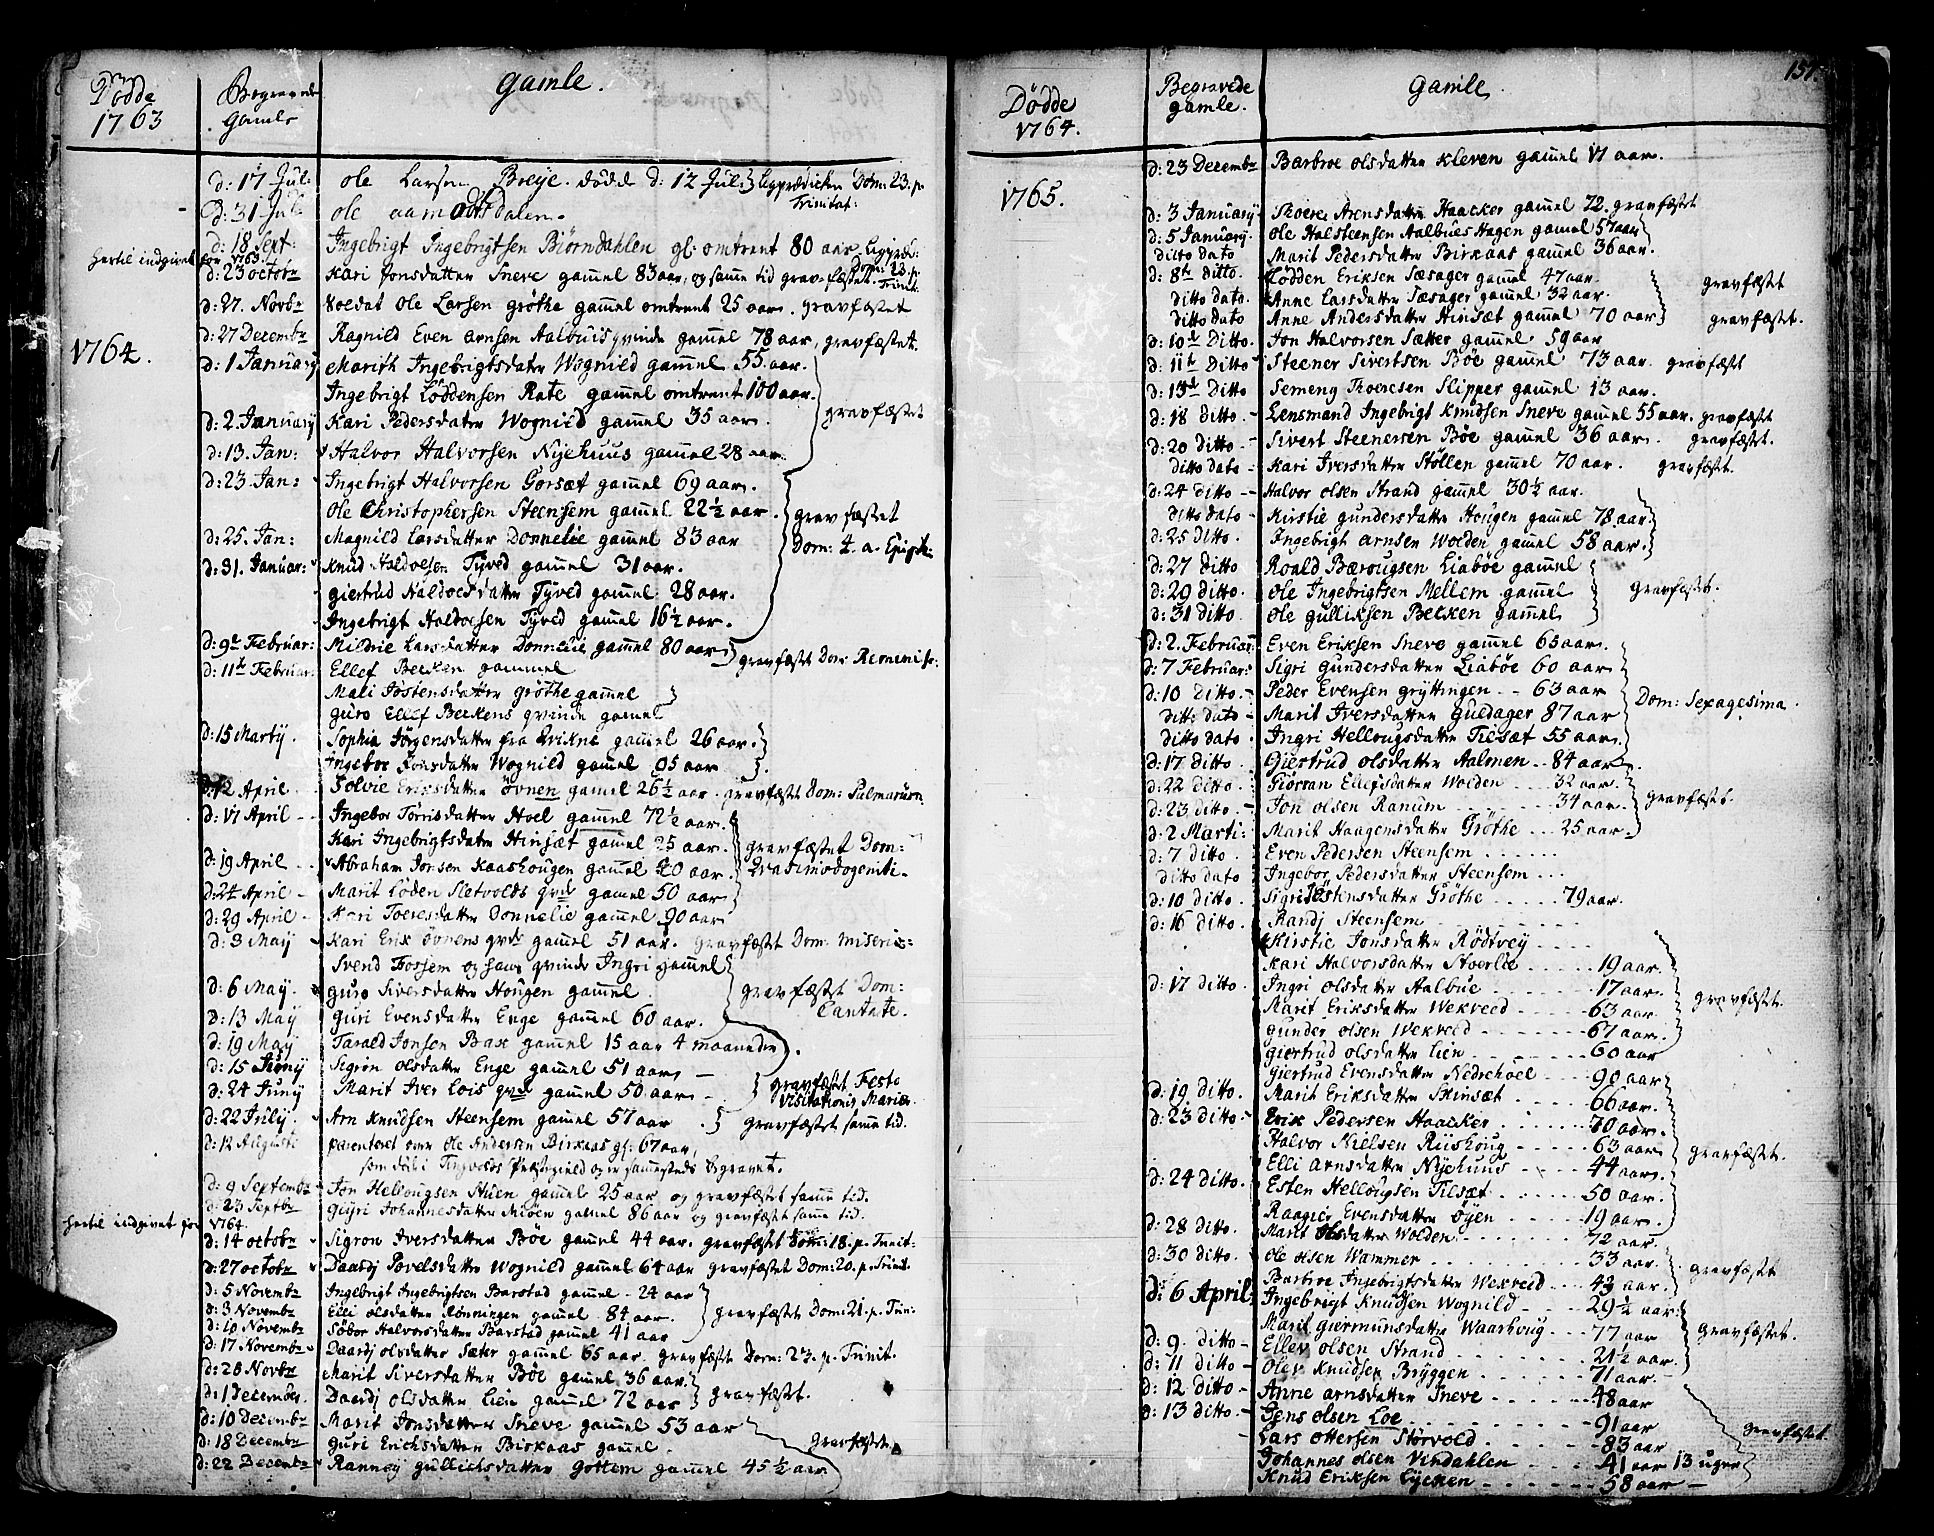 Dödde
1763
Begravede
Gamle
Gamle.
d: 17 Jul: ole Larsen Boeÿe. dödde d: 12 Jul: Ligprædicken Dom: 23. p.
Trinitat:
d: 31 Jul: ole aamodtsdalen.
d: 18 Sept: Ingebrigt Ingebrigtsen Biörndahlen gl: omtrent 80 aar
hertil indgivet for 1763.
d: 23 octobr Kari Jonsdatter Sneve gamel 83 aar, og samme tid gravfæstet.
d: 27. Novbr Soldat Ole Larsen gröthe gamel omtrent 25 aar. gravfæstet
d: 27 Decembr Ragnild Even arnsen Aalbuis qvinde gamel 78 aar, gravfæstet.
1764.
d: 1 January Marith Ingebrigtsdater Wognild gamel 55 aar.
Ingebrigt Löddensen Rate gamel omtrent 100 aar.
d: 2. January Kari Pedersdater Wognild gamel 35 aar. gravfæstet
d: 13. Jan: Halvor Halvorsen Nÿehuus gamel 28 aar.
d: 23 Jan: Ingebrigt Halvorsen Gorsæt gamel 69 aar.
Ole Christophersen Steensem gamel 22½ aar. gravfæstet
d: 25. Jan: Magnild Larsdatter Donnelie gamel 83 aar Dom: 4. a. Epiph:
d: 31. Januar: Knud Haldoesen Tÿved gamel 31 aar.
giertrud Haldoesdatter Tÿved gamel 28 aar.
Ingebrigt Haldoesen Tÿved gamel 16½ aar.
d: 9de Februar: Mildrie Larsdatter Donnelie gamel 80 aar gravfæstet Dom: Reminisc:
d: 11te Februar: Ellef Becken gammel
Mali Jöstensdatter gröthe gamel
guro Ellef Beckens qvinde gamel
d: 15 Martÿ. Sophia Jörgensdatter fra Qvikne gamel 26 aar.
Ingebor Jonsdatter Wognild gamel 05 aar
d: 12 April Solvie Eriksdatter övnen gamel 26½ aar. gravfæstet Dom: Palmarum
d: 17 April Ingebor Törrisdatter Hoel gamel 72½ aar.
Kari Ingebrigtsdater Hinsæt gamel 25 aar. gravfæstet Dom:
d: 19 April Abraham Jonsen Kaashougen gamel 20 aar. Qvasimodogeniti.
d: 24 April Marit Löden Sletvolds qvde gamel 50 aar
d: 29 April Kari Toeresdatter Donnelie gamel 90 aar
d: 3 May Kari Erik övnens qvde gamel 51 aar. gravfæstet Dom. Miseric:
Svend Fossem og hans qvinde Ingri gamel
d: 6 May. guro Siversdatter Hougen gamel. gravfæstet Dom:
d: 13 May guri Evensdatter Enge gamel 60 aar. Cantate.
d: 19 May Tarald Jonsen Bax gamel 15 aar 4 maaneder.
d: 15 Junÿ Sigron olsdatter Enge gamel 51 aar
d: 24 Junÿ Marit Iver Lois qvde gamel 50 aar gravfæstet Festo
Visitationis Mariæ
d: 22 Julÿ. Arn Knudsen Steensem gamel 57 aar gravfæstet samme tid.
d: 12 Augusti parenteret over ole Andersen Birkaas gl: 67 aar,
som død i Tingvolds Præstegield og er sammesteds begravet.
d: 9 Septembr Jon Hellougsen Stuen gamel 25 aar og gravfæstet samme tid.
d: 23 Septbr Guri Johannesdatter Mioen gamel 86 aar og gravfæstet samme tid.
hertil indgivet for 1764.
d: 14 octobr Sigron Iversdatter Böe gamel 44 aar. gravfæstet Dom: 18. p. Trinit:
d: 27 octobr Daardj Povelsdatter Wognild gamel 64 aar gravfæstet Dom: 20. p. Trinit.
d: 5 Novembr Ingebrigt Ingebrigtsen Barstad gamel 24 aar
d: 3 Novembr Elli olsdatter Rönningen gamel 84 aar. gravfæstet Dom: 21. p. Trin:
d: 10 Novembr Söbor Halvorsdatter Barstad gamel 41 aar
d: 17 Novembr Daardj olsdatter Sæter gamel 65 aar. gravfæstet Dom: 23. p. Trinit.
d: 28 Novbr Marit Siversdatter Böe gamel 36 aar.
d: 1 December Daardj olsdatter Lien gamel 72 aar gravfæstet.
d: 10 Decembr Marit Jonsdatter Sneve gamel 53 aar
d: 18 Decembr Guri Erichsdatter Birkaas gamel. gravfæstet.
d: 22 Decembr Ranneÿ gullichsdatter Gottem gamel 45½ aar
Dödde
1764.
Begravede
gamle.
Gamle.
157
d: 23 Decembr Barbroe olsdatter Kleven gamel 17 aar.
1765.
d: 3 January Thoere Arensdatter Haacker gamel 72. gravfæstet
d: 5 January. ole Halsteensen Aalbues Hagen gamel 57 aar
ditto dato Marit Pedersdatter Birkaas gamel 36 aar.
d: 8de ditto. Lödden Eriksen Sæsager gamel 47 aar. gravfæstet
ditto dato. Anne Larsdatter Sæsager gamel 32 aar.
ditto dato Anne Andersdatter Hinsæt gamel 70 aar. gravfæstet.
d: 10de ditto. Jon Halvorsen Sætter gamel 59 aar
d: 11te ditto Steener Sivertsen Böe gamel 73 aar. gravfæstet
d: 13de ditto Semeng Thoeresen Slipper gamel 13 aar.
d: 18 ditto. Lensmand Ingebrigt Knudsen Sneve gamel 55 aar. gravfæstet
d: 20 ditto Sivert Steenersen Böe gamel 36 aar. gravfæstet.
ditto dato Kari Iversdatter Stöllen gamel 70 aar. gravfæstet.
d: 24 ditto Halvor olsen Strand gamel 30½ aar.
ditto dato Kirstie gundersdatter Hougen gamel 78 aar.
d: 25 ditto. Ingebrigt arnsen Wolden gamel 58 aar.
d: 27 ditto Roald Bærougsen Liaböe gamel
d: 29 ditto. ole Ingebrigtsen Mellem gamel gravfæstet.
d: 31 ditto ole gulliksen Becken gamel
d: 2. Februar: Even Eriksen Sneve gamel 65 aar.
d: 7 Februar: Sigri Gundersdatter Liaböe 60 aar
d: 10 ditto. Peder Evensen grÿttingen 63 aar Dom: Sexagesima.
ditto dato Marit Iversdatter guedager 87 aar
ditto dato Ingri Hellougsdatter Tilsæt 55 aar.
d: 17 ditto Giertrud olsdatter Aalmen 84 aar
d: 22 ditto Giöran Ellefsdatter Wolden 32 aar.
d: 23 ditto Jon olsen Ranum 34 aar. gravfæstet.
d: 2 Marti: Marit Haagensdatter Gröthe 25 aar.
d: 7 ditto Even Pedersen Steensem
ditto dato Ingebor Pedersdatter Steensem
d: 10 ditto Sigri Jöstensdatter Gröthe 79 aar.
d: 16 ditto. Randj Steensem
Kirstie Jonsdatter Rödtveÿ
Kari Halvorsdatter Stverlie 19 aar.
d: 17 ditto. Ingri olsdatter Aalbue 17 aar. gravfæstet.
Marit Eriksdatter Wekveed 63 aar.
gunder olsen Wekveed 67 aar.
giertrud olsdatter Lien 60 aar
giertrud Evensdatter Nedrehoel 90 aar
d: 19 ditto. Marit Eriksdatter Skinsæt 66 aar.
d: 23 ditto. Erik Pedersen Haacker 70 aar.
Halvor Nielsen Riishoug 63 aar. gravfæstet.
Elli arnsdatter Nÿehuus 44 aar.
d: 24 ditto. Esten Hellougsen Tilsæt 50 aar.
Raagier Evensdatter öÿen 19 aar.
d: 28 ditto. Marit olsdatter Wolden 72 aar
d: 30 ditto. ole olsen Wammer 33 aar. gravfæstet
Barbroe Ingebrigtsdatter Wekveed 43 aar.
d: 6 April: Ingebrigt Knudsen Wognild 29½ aar.
Marit giermundsdatter Waarhoug 77 aar gravfæstet.
d: 9. ditto Ellev olsen Strand 21½ aar.
d: 11 ditto Olev Knudsen Brÿggen 71 aar.
d: 12 ditto Anne arnsdatter Sneve 48 aar
d: 13 ditto. Jens olsen Loe 91 aar gravfæstet
Lars ottersen Störvold 83 aar
Johannes olsen Vindahlen 41 aar 13 uger
Knud Eriksen Lÿcken 58 aar